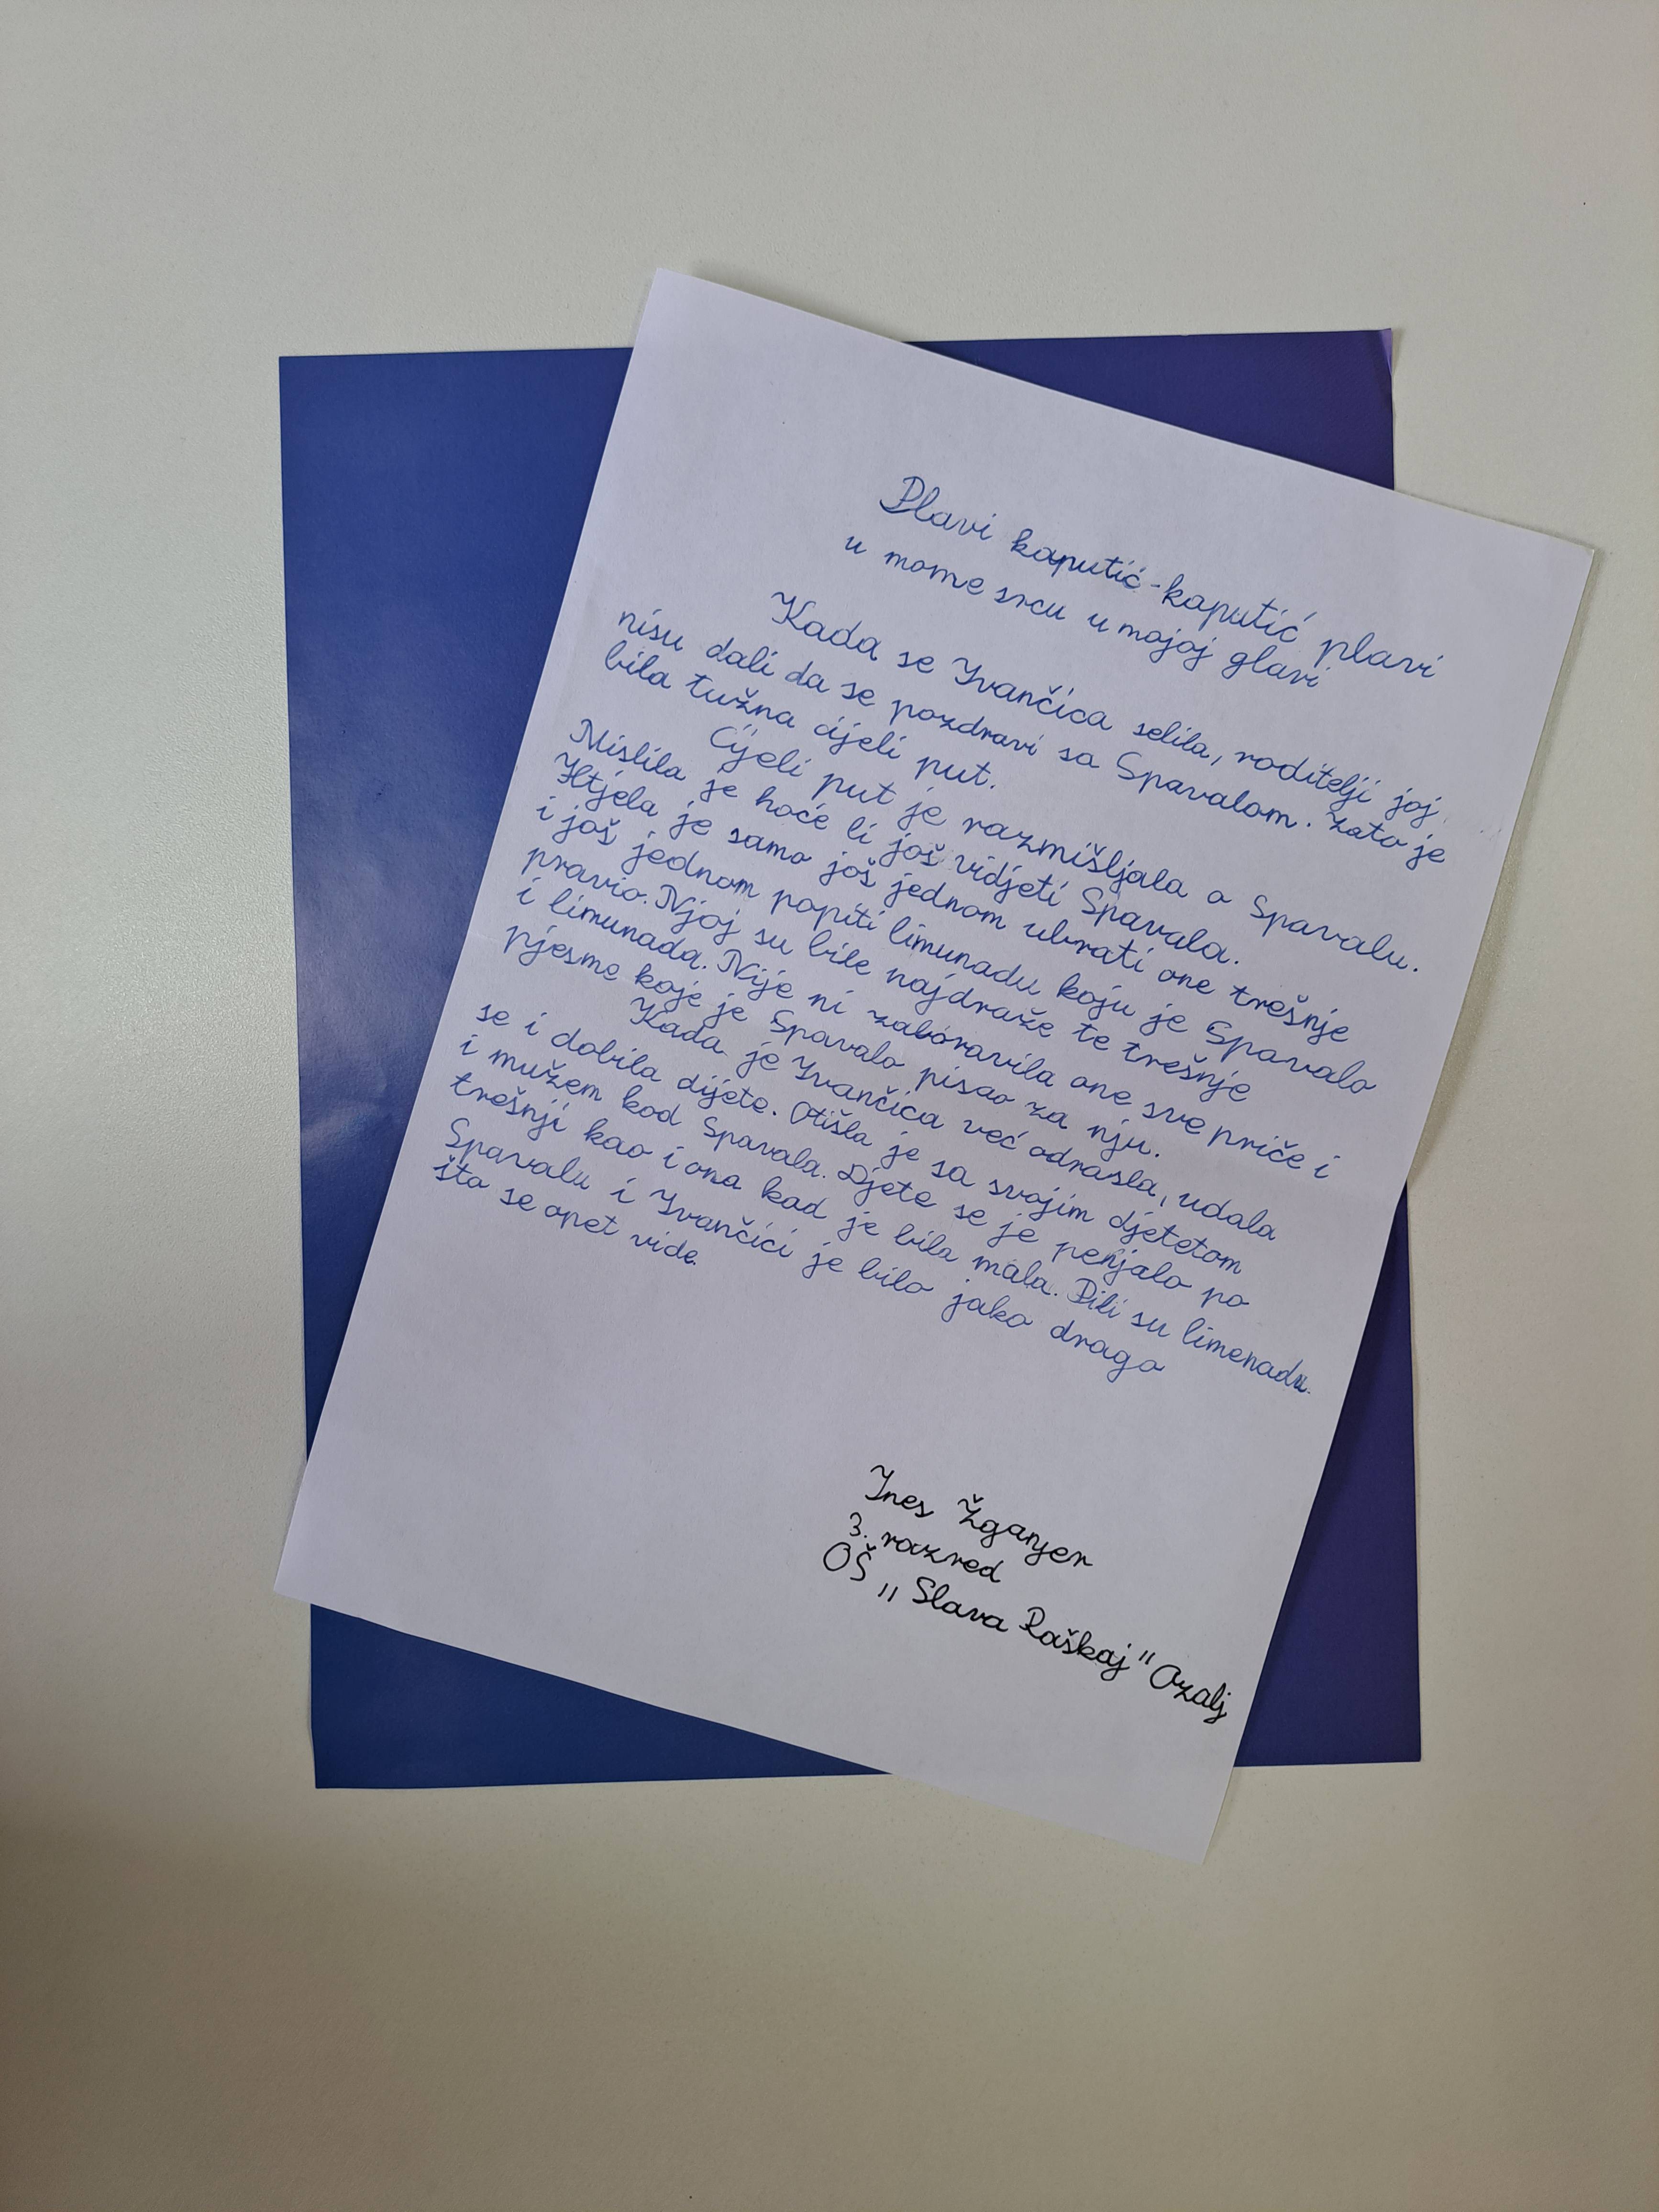 Plavi kaputić-kaputić plavi
u mome srcu u mojoj glavi
Kada se Ivančica selila, roditelji joj
nisu dali da se pozdravi sa Spavalom. Zato je
bila tužna cijeli put.
Cijeli put je razmišljala o Spavalu.
Mislila je hoće li još vidjeti Spavala.
Htjela je samo još jednom ubrati one trešnje
i još jednom popiti limunadu koju je Spavalo
pravio. Njoj su bile najdraže te trešnje
i limunada. Nije ni zaboravila one sve priče i
pjesme koje je Spavalo pisao za nju.
Kada je Ivančica već odrasla, udala
se i dobila dijete. Otišla je sa svojim djetetom
i mužem kod Spavala. Djete se je penjalo po
trešnji kao i ona kad je bila mala. Pili su limenadu.
Spavalu i Ivančici je bilo jako drago
šta se opet vide.
Ines Žganjer
3. razred
OŠ „Slava Raškaj" Ozalj